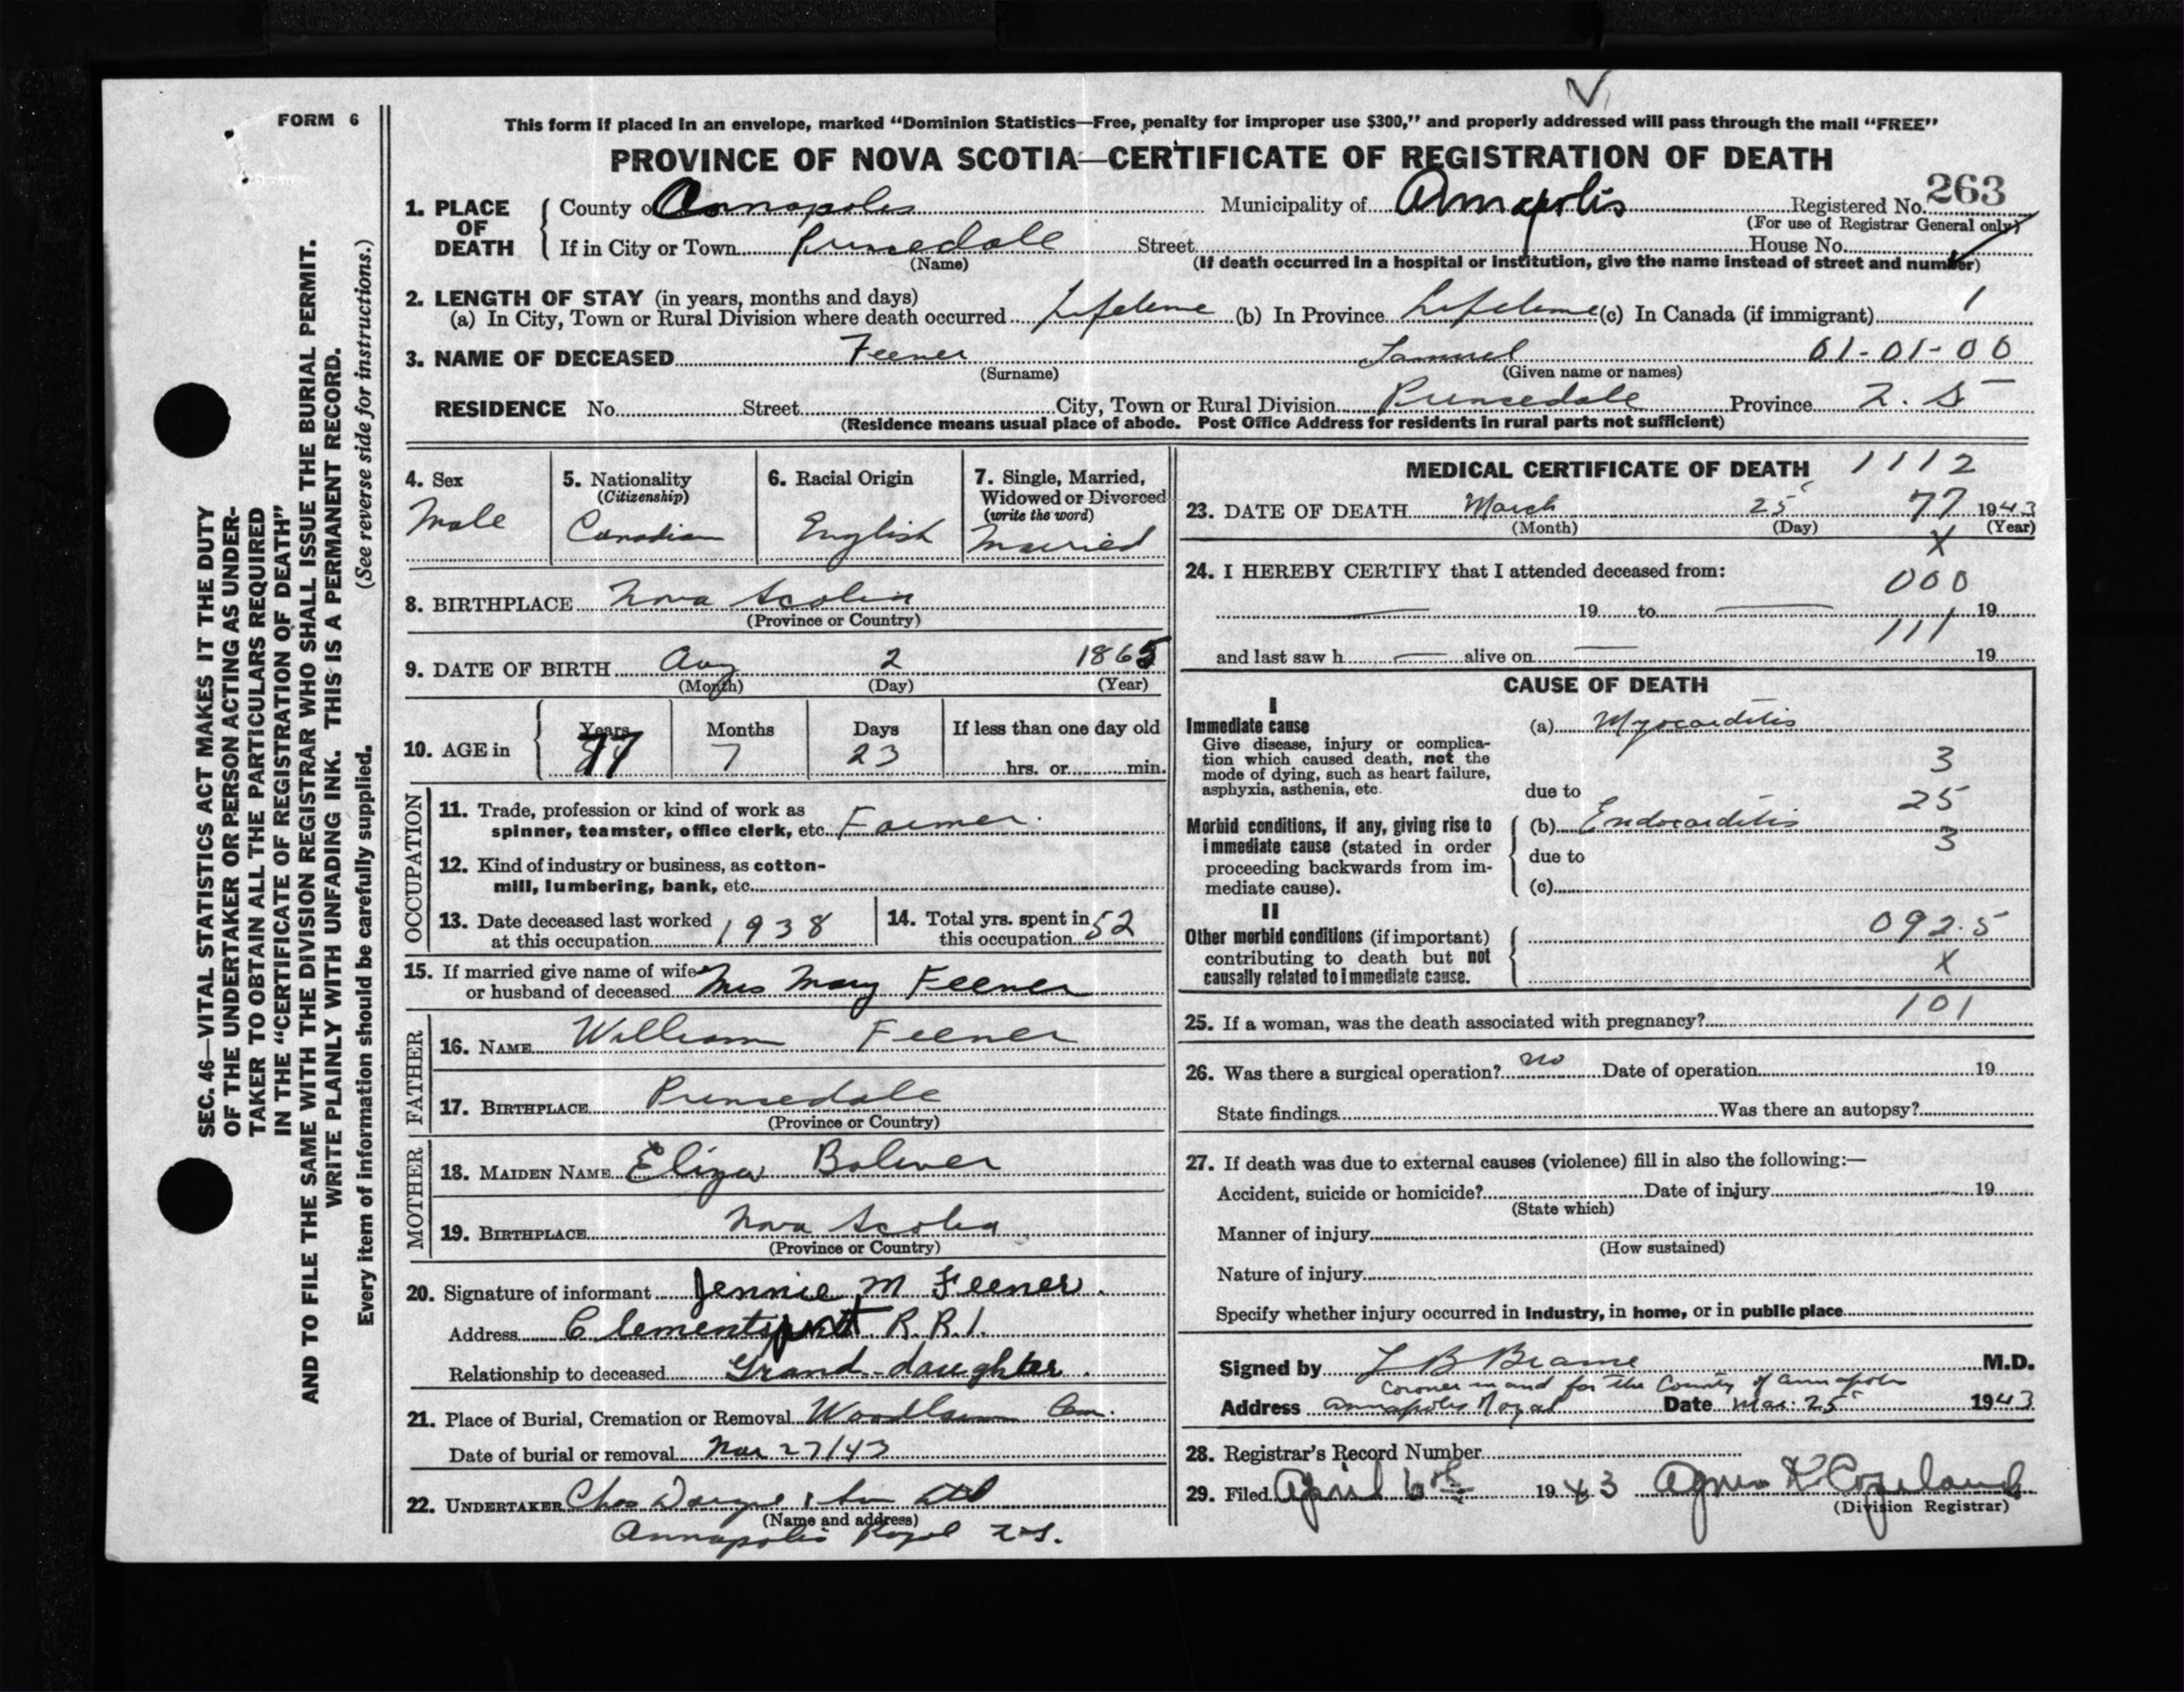 FORM 6
This form if placed in an envelope, marked “Dominion Statistics—Free, penalty for improper use $300,” and properly addressed will pass through the mail “FREE”
PROVINCE OF NOVA SCOTIA—CERTIFICATE OF REGISTRATION OF DEATH
263
1. PLACE OF DEATH
County of Annapolis Municipality of Annapolis Registered No.
(For use of Registrar General only)
If in City or Town Princedale Street House No.
(Name) (If death occurred in a hospital or institution, give the name instead of street and number)
2. LENGTH OF STAY (in years, months and days) 1
(a) In City, Town or Rural Division where death occurred Lifetime (b) In Province Lifetime (c) In Canada (if immigrant)
3. NAME OF DECEASED Feener Samuel 01-01-00
(Surname) (Given name or names)
RESIDENCE No. Street City, Town or Rural Division Princedale Province N. S
(Residence means usual place of abode. Post Office Address for residents in rural parts not sufficient)
4. Sex
Male
5. Nationality
(Citizenship)
Canadian
6. Racial Origin
English
7. Single, Married,
Widowed or Divorced
(write the word)
Married
8. BIRTHPLACE Nova Scotia
(Province or Country)
9. DATE OF BIRTH Aug 2 1865
(Month) (Day) (Year)
10. AGE in
Years Months Days If less than one day old
77 7 23
hrs. or min.
OCCUPATION
11. Trade, profession or kind of work as
spinner, teamster, office clerk, etc. Farmer.
12. Kind of industry or business, as cotton-
mill, lumbering, bank, etc.
13. Date deceased last worked
at this occupation 1938
14. Total yrs. spent in
this occupation 52
15. If married give name of wife
or husband of deceased Mrs Mary Feener
FATHER
16. NAME William Feener
17. BIRTHPLACE Princedale
(Province or Country)
MOTHER
18. MAIDEN NAME Eliza Boliver
19. BIRTHPLACE Nova Scotia
(Province or Country)
20. Signature of informant Jennie M Feener.
Address Clementsport R.R.1.
Relationship to deceased Grand-daughter.
21. Place of Burial, Cremation or Removal Woodlawn Cem.
Date of burial or removal Mar 27/43
22. UNDERTAKER Chas
(Name and address)
Annapolis Royal N.S.
MEDICAL CERTIFICATE OF DEATH 1112
23. DATE OF DEATH March 25 77 1943
(Month) (Day) (Year)
X
24. I HEREBY CERTIFY that I attended deceased from:
000
19 to 19
111
and last saw h alive on 19
CAUSE OF DEATH
I
Immediate cause
Give disease, injury or complica-
tion which caused death, not the
mode of dying, such as heart failure,
asphyxia, asthenia, etc.
(a) Myocarditis
3
due to
25
Morbid conditions, if any, giving rise to
immediate cause (stated in order
proceeding backwards from im-
mediate cause).
(b) Endocarditis
3
due to
(c)
II
Other morbid conditions (if important)
contributing to death but not
causally related to immediate cause.
092.5
X
101
25. If a woman, was the death associated with pregnancy?
26. Was there a surgical operation? no Date of operation 19
State findings Was there an autopsy?
27. If death was due to external causes (violence) fill in also the following:—
Accident, suicide or homicide? Date of injury 19
(State which)
Manner of injury
(How sustained)
Nature of injury
Specify whether injury occurred in industry, in home, or in public place
Signed by L B Brame M.D.
Coroner in and for the County of Annapolis
Address Annapolis Royal Date Mar. 25 1943
28. Registrar's Record Number
29. Filed April 6th 1943 Agnes K Copeland
(Division Registrar)
SEC. 46—VITAL STATISTICS ACT MAKES IT THE DUTY
OF THE UNDERTAKER OR PERSON ACTING AS UNDER-
TAKER TO OBTAIN ALL THE PARTICULARS REQUIRED
IN THE “CERTIFICATE OF REGISTRATION OF DEATH”
AND TO FILE THE SAME WITH THE DIVISION REGISTRAR WHO SHALL ISSUE THE BURIAL PERMIT.
WRITE PLAINLY WITH UNFADING INK. THIS IS A PERMANENT RECORD.
Every item of information should be carefully supplied. (See reverse side for instructions.)